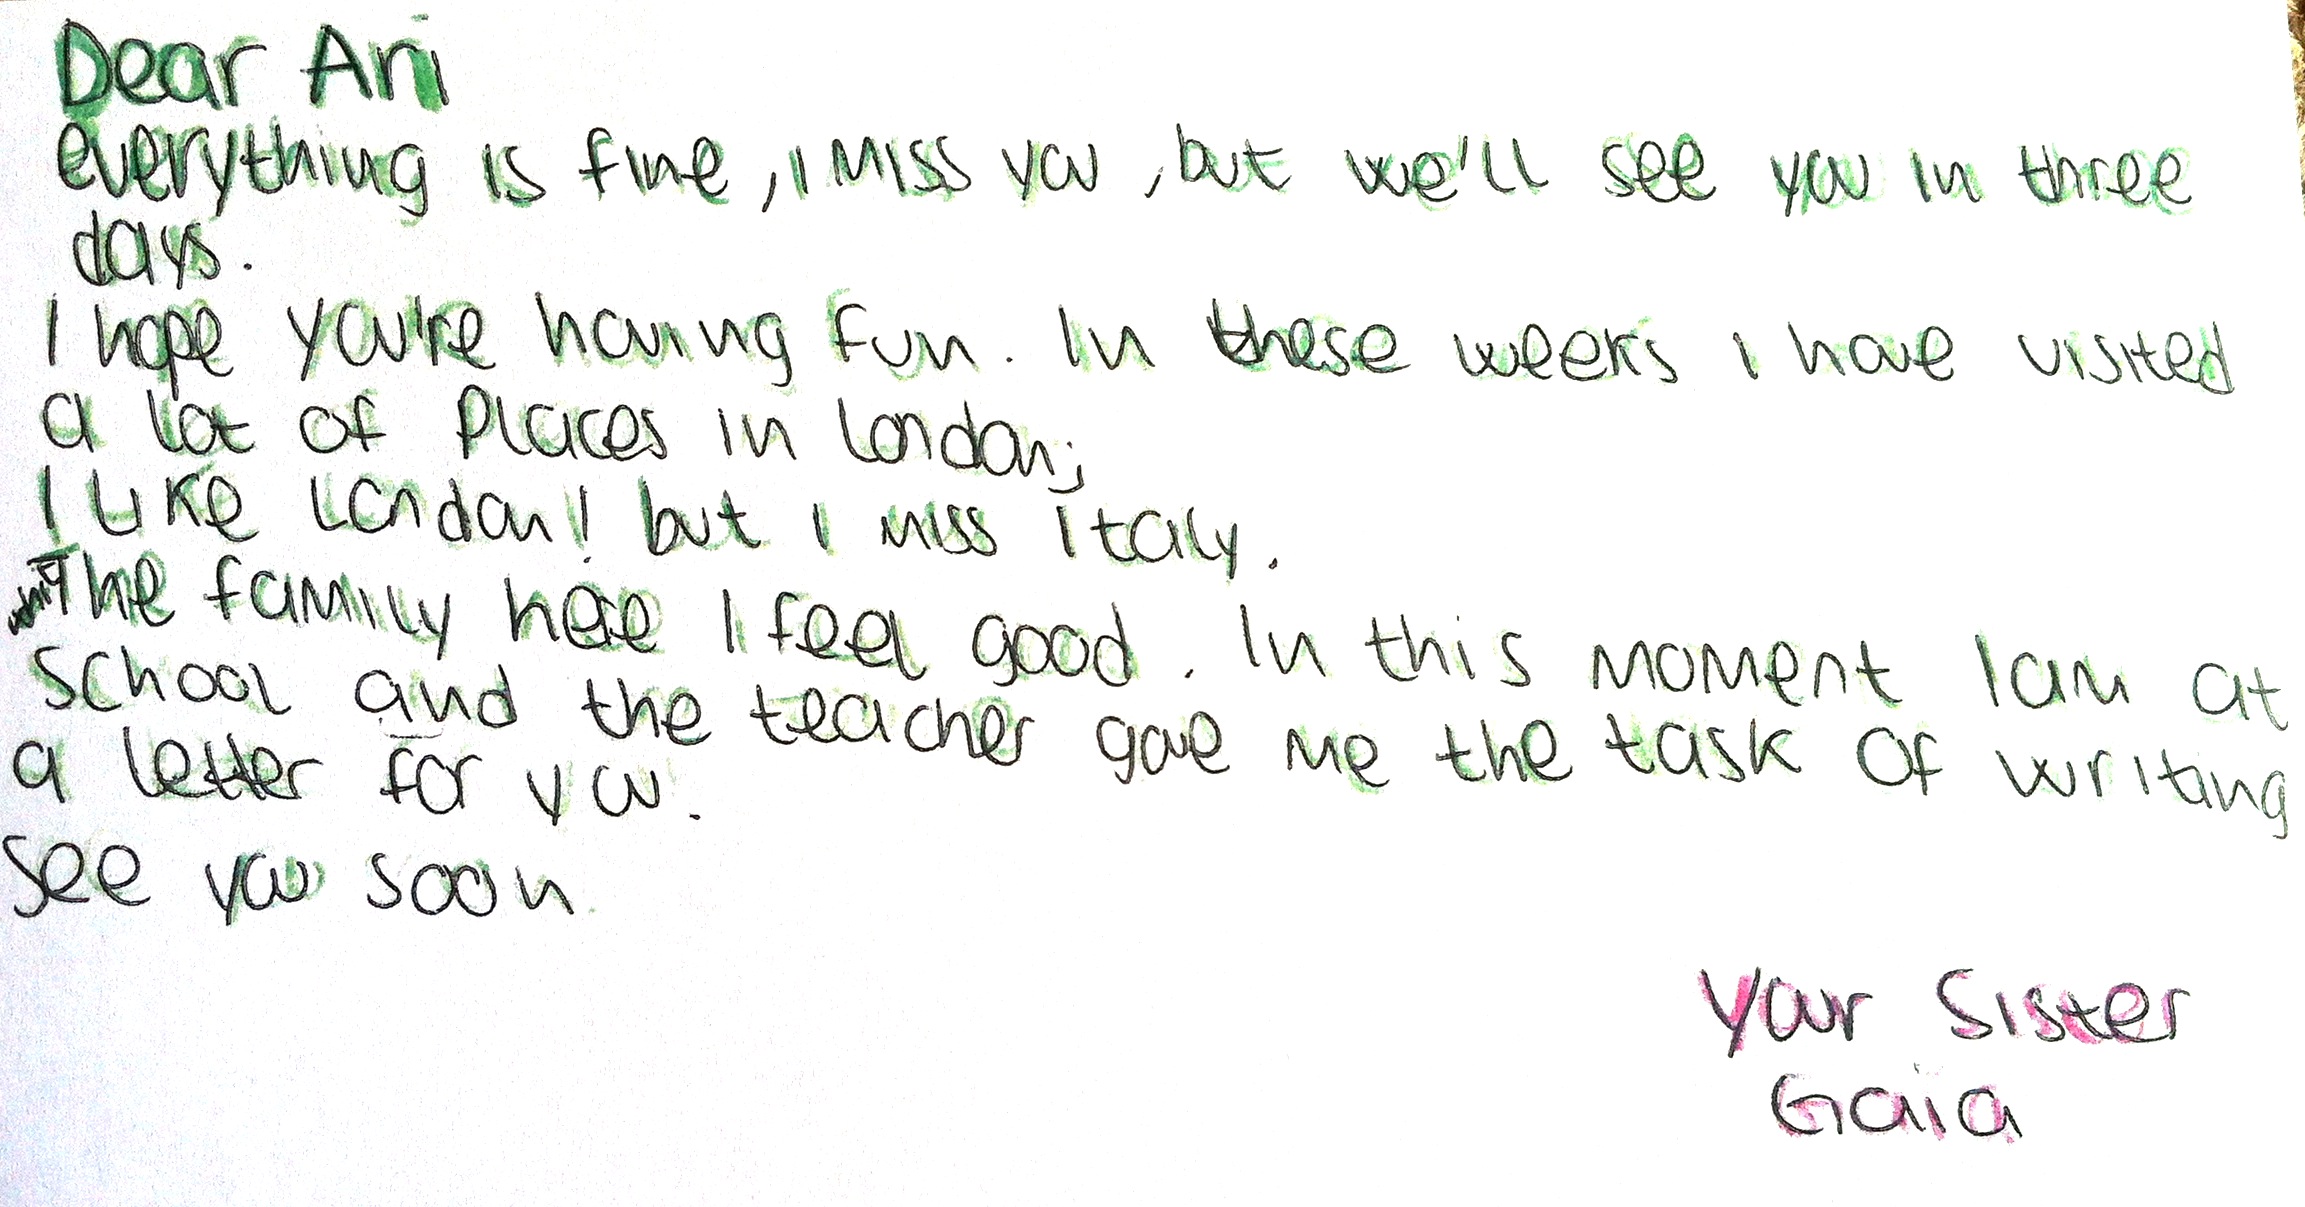 Dear Ani
everything is fine, I miss you, but we'll see you in three
days.
I hope you're having fun. In these weeks I have visited
a lot of places in London;
I like London! but I miss Italy.
The family here I feel good. In this moment I am at
school and the teacher gave me the task of writing
a letter for you.
See you soon
Your Sister
Gaia